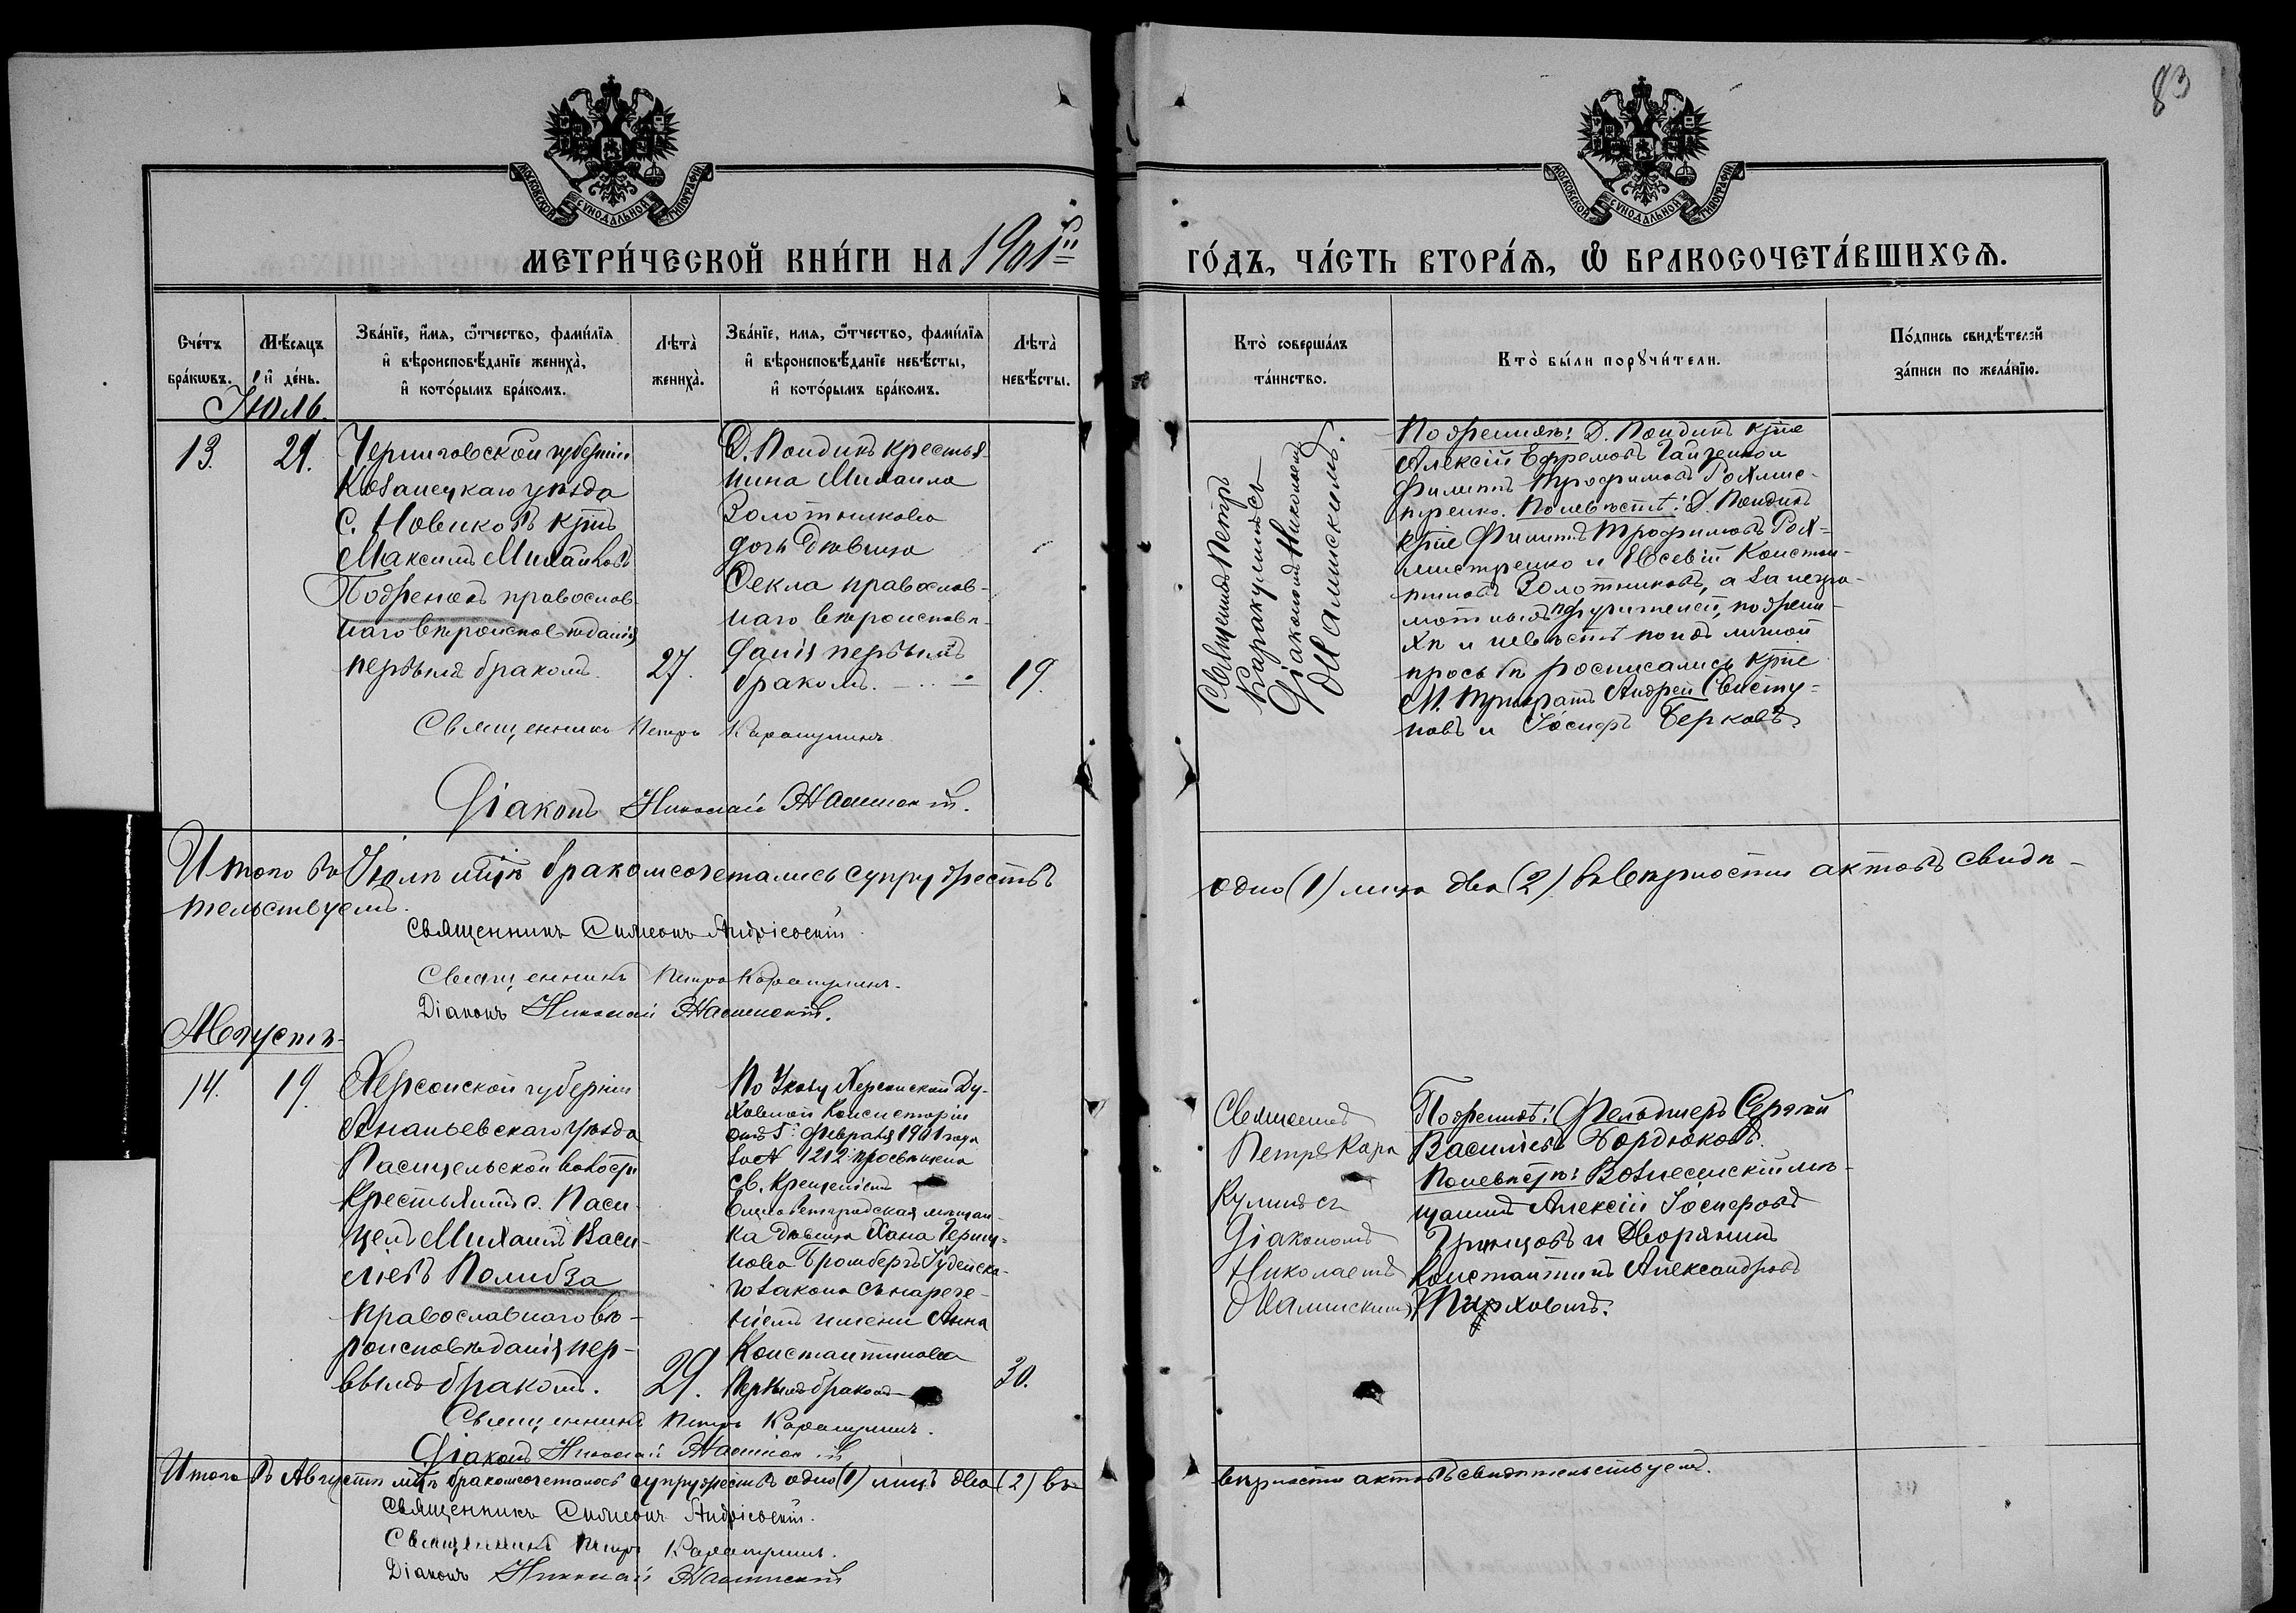 83
МОСКОВСКОЙ СУНОДАЛЬНОЙ ТИПОГРАФІИ
МОСКОВСКОЙ СУНОДАЛЬНОЙ ТИПОГРАФІИ
МЕТРИ́ЧЕСКОЙ КНИ́ГИ НА 1901й
ГО́ДЪ, ЧА́СТЬ ВТОРА́Я, Ѡ БРАКОСОЧЕТА́ВШИХСЯ.
Сче́тъ бра́ковъ.
Мѣ́сяцъ и де́нь.
Зва́нїе, и́мя, ѻ҆́тчество, фами́лїя
и҆ вѣроисповѣ́данїе жениха̀,
и҆ кото́рымъ бра́комъ.
Лѣта̀ жениха̀.
Зва́нїе, имя, ѻ҆́тчество, фами́лїя
и҆ вѣроисповѣ́данїе невѣ́сты,
и҆ кото́рымъ бра́комъ.
Лѣта̀ невѣ́сты.
Кто̀ соверша́лъ та́инство.
Кто̀ бы́ли порꙋчи́тели.
По́дпись свидѣ́телей за́писи по жела́нїю.
Іюль.
13.
29.
Черниговской губерніи
уѣзда
с. Новиковъ крнъ
Максимъ Михайловъ
православ-
наго вѣроисповѣданія
первымъ бракомъ.
27.
Д. Пондикъ крестья-
нина Михаила
Золотникова
дочь дѣвица
Ѳекла православ-
наго вѣроисповѣ-
данія первымъ
бракомъ.
19.
Священникъ Петръ
Діакономъ Николаемъ
По женихѣ: Д. Пондикъ крне
Алексій Ефремовъ
Филиппъ Трофимовъ
По невѣстѣ: Д. Пондикъ
крне Филиппъ Трофимовъ
и Евсевій Констан-
тиновъ Золотниковъ, а за негра-
мотныхъ поручителей, по жени-
хѣ и невѣстѣ по ихъ личной
просьбѣ росписались крне
М. Андрей Свисту-
новъ и Іосифъ Берковъ
Священникъ Петръ
Діаконъ Николай
Итого въ Іюлѣ мцѣ бракомъ сочетались супружествъ одно (1) лица два (2) въ вѣрности актовъ свидѣ-
тельствуемъ.
Священникъ Симеонъ Андріевскій
Священникъ Петръ
Діаконъ Николай
Августъ
14.
19.
Херсонской губерніи
Ананьевскаго уѣзда
Пасицельской волости
крестьянинъ с. Паси-
целъ Михаилъ Васи-
ліевъ Полибза
православнаго вѣ-
роисповѣданія пер-
вымъ бракомъ.
29.
По Указу Херсонской Ду-
ховной Консисторіи
отъ 5. Февраля 1901 года
за № 1212 просвѣщена
св. Крещеніемъ
мѣщан-
ка дѣвица Хана
Бромбергъ Іудейска-
го закона съ нарече-
ніемъ имени Анна
Константинова
первымъ бракомъ
30.
Священникъ
Петръ
Діакономъ
Николаемъ
По женихѣ: Фельдшеръ Сергѣй
Васильевъ
По невѣстѣ: Вознесенскій мѣ-
щанинъ Алексій Іосифовъ
и Дворянинъ
Константинъ Александровъ
Священникъ Петръ
Діаконъ Николай
Итого въ Августѣ мцѣ бракомъ сочеталось супружествъ одно (1) лицъ два (2) въ
вѣрности актовъ свидѣтельствуемъ.
Священникъ Симеонъ Андріевскій
Священникъ Петръ
Діаконъ Николай